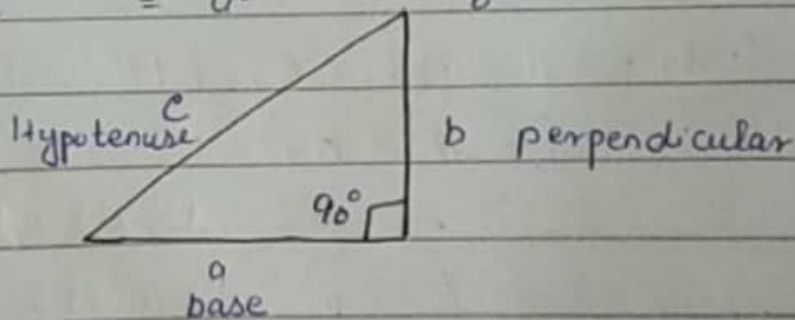 c
Hypotenuse
b perpendicular
90°
a
base